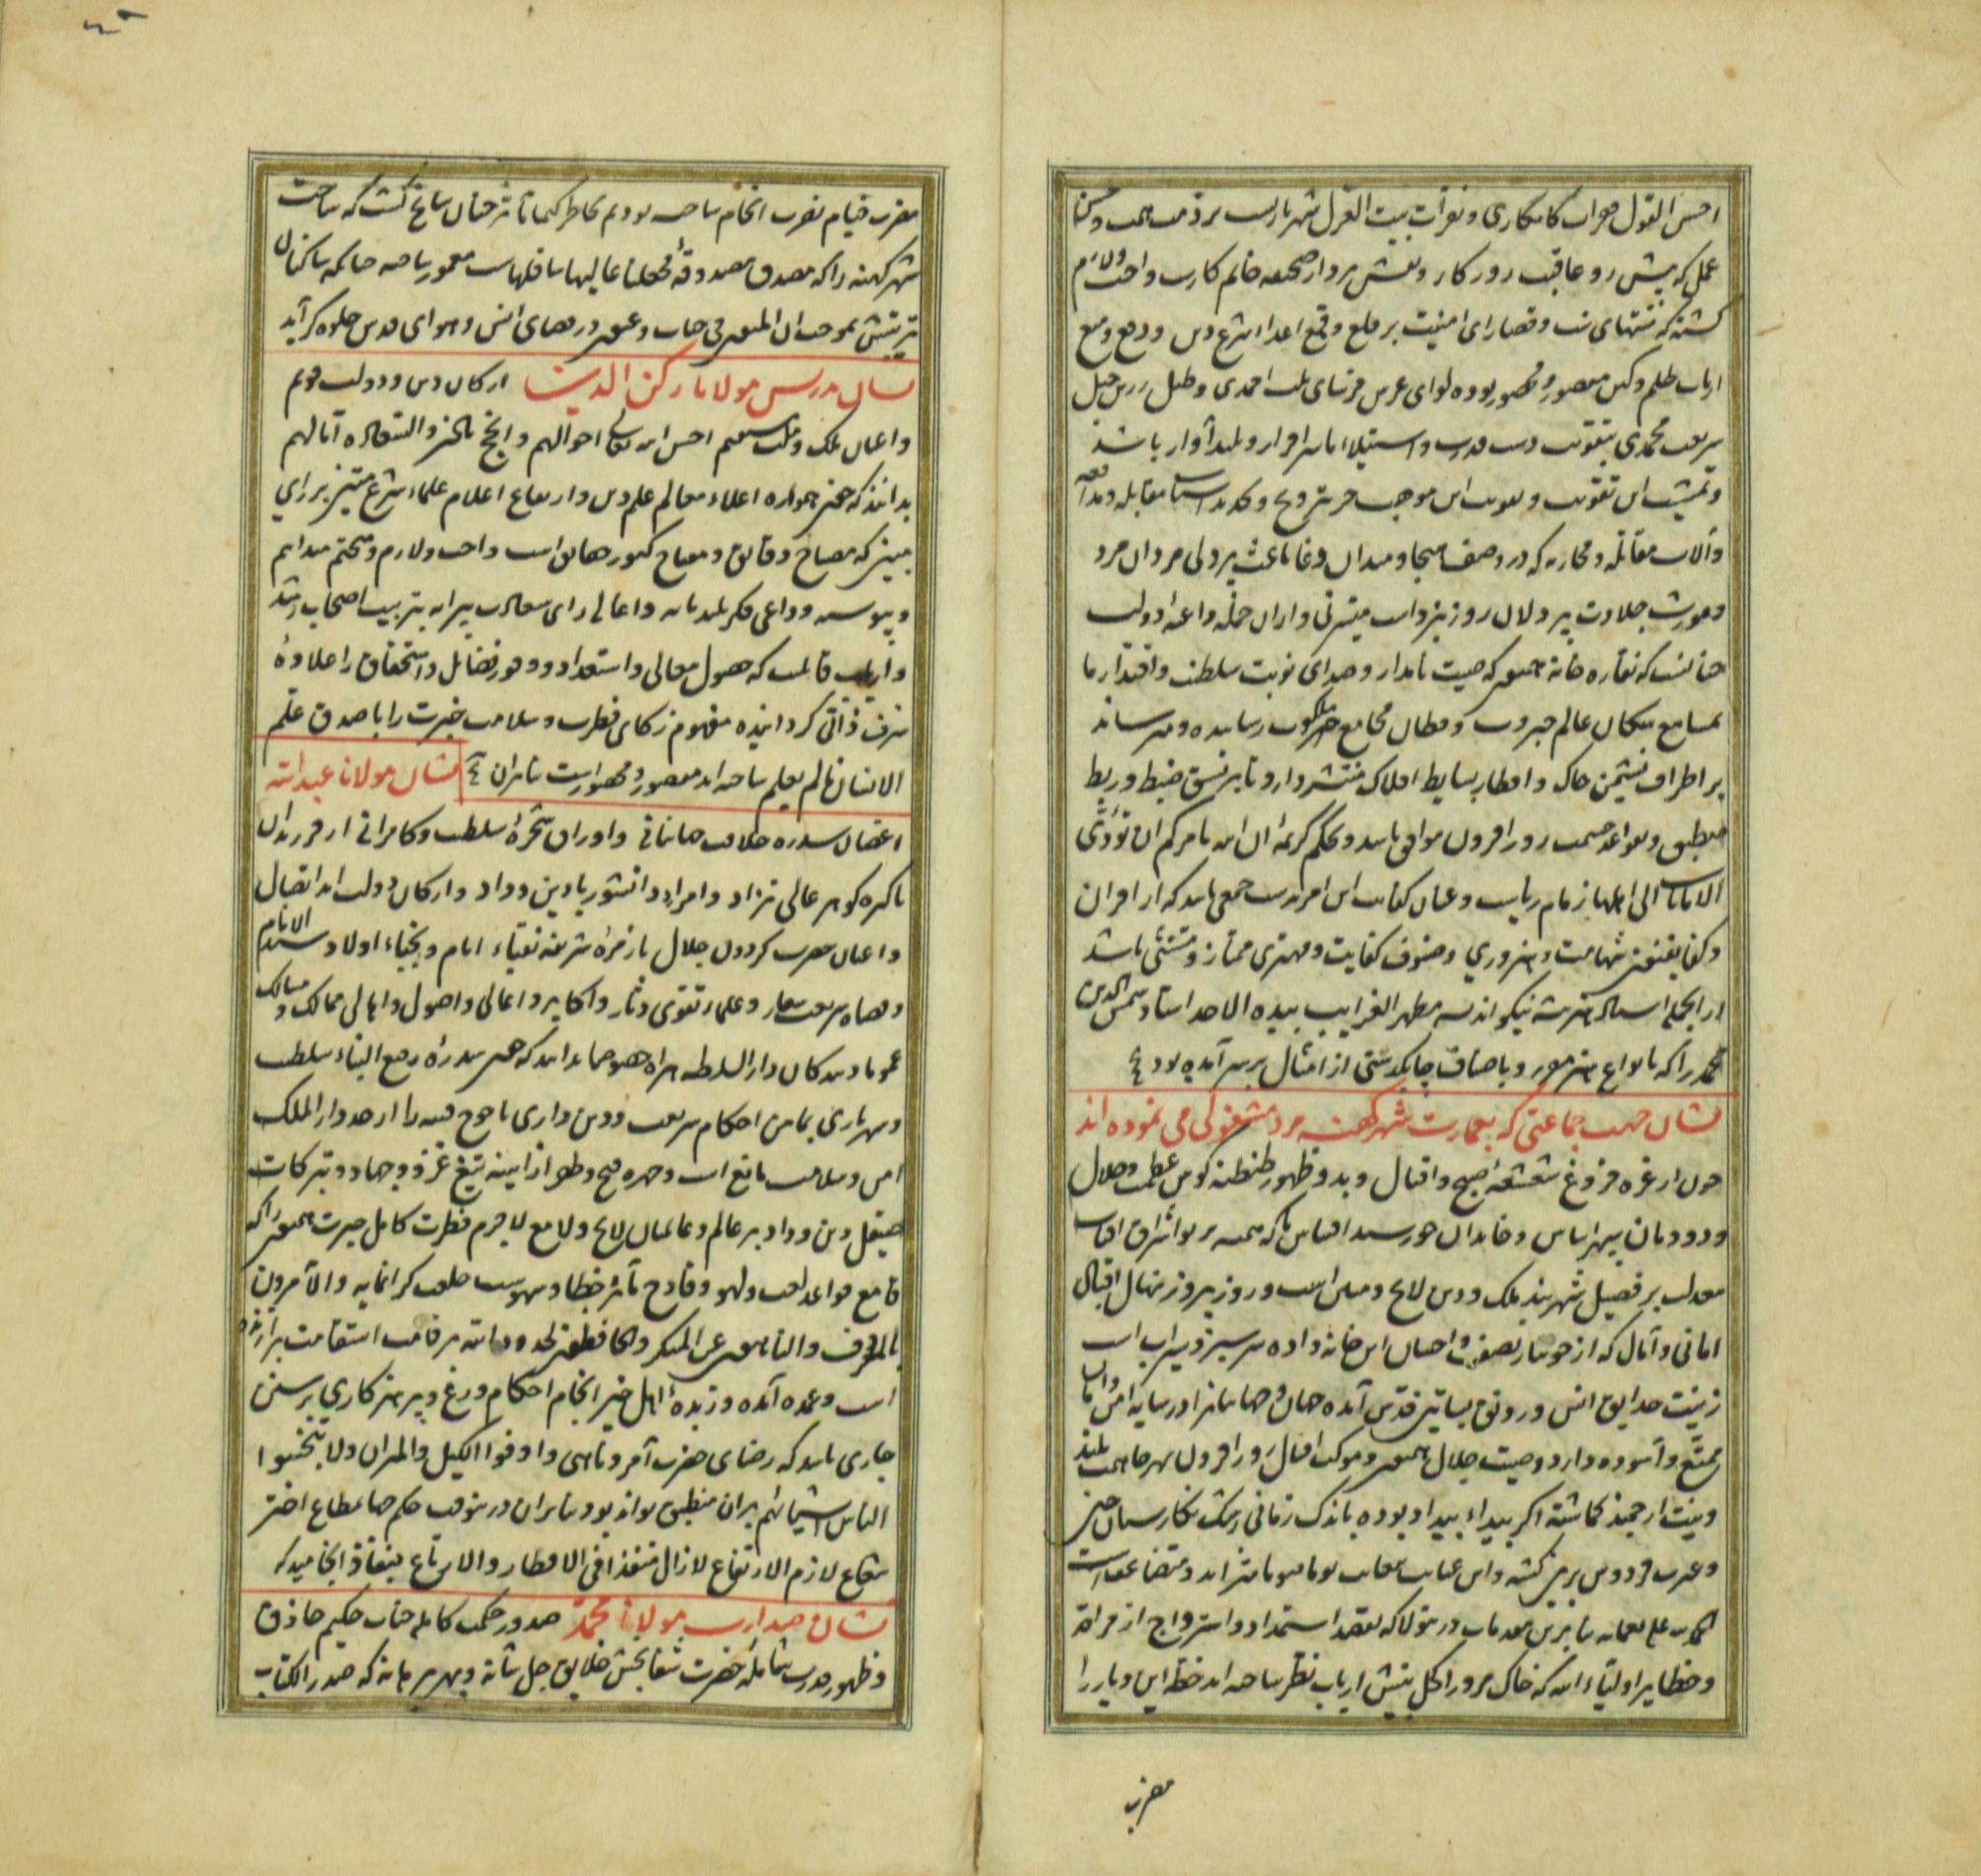 احسن القول صواب کامکاری و نوزات بیت الغزل شهریاریست بر ذمت همت و حسن
عمل که پیش رو عاقبت روزکار و نقش پرداز صحیفه خاتم کارست واجب و لازم
کشته که منتهای نیت و قصارای امنیت بر قلع و قمع اعداء شرع و دین و دفع و منع
ارباب ظلم و کین مقصور و محصور بوده لوای عرش فرسای ملت احمدی و طبل زرین
شریعت محمدی بتقویت دست قدرت و استیلاء ما سرافراز و بلند آواز باشد
و تمشیت این تقویت و تقویت این موجب جز بترویج و تجدید اسباب مقابله و مدافعه
و آلات مقاتله و محاربه که در وصف هیجا و میدان وغا باعث پردلی مردان مرد
و مورث جلادت پردلان روز نبرد است میسر نی و از آن جمله داعیه دولت
چنانست که نقاره خانه همیون که صیت نامدار و صدای نوبت سلطنت و اقتدار ما
بمسامع سکان عالم جبروت و قطان مجامع ملکوت رسانیده و می رساند
بر اطراف نشیمن خاک و اقطار بسایط افلاک منتشر دارد تا بر نسق ضبط و ربط
منطبق و بقواعد حشمت روزافزون موافق باشد و بحکم کریمه ان الله یامرکم ان تؤدوا
الامانات الی اهلها زمام ریاست و عنان کفایت این امر بدست جمعی باید که از اقران
و اکفا بفنون شهامت و هنروری و صنوف کفایت و مهتری ممتاز و مستثنی باشد
از آنجمله استاد هنر پیشه نیکو اندیشه مظهر الغرایب بیده الاحد استاد شمس الدین
محمد را که بانواع هنر موفور و باصناف چابکدستی از امثال بر سر آمده بود
نشان جهت جماعتی که بعمارت شهر کهنه مرو مشغولی می نموده اند
چون از غره فروغ شعشعه صبح و اقبال و بدو ظهور طنطنه کوس عظمت و جلال
و دودمان سپهر اساس و خاندان خورشید اقتباس ما که همیشه پرتو اشراق آفتاب
معدلت بر فصیل شهربند ملک و دین لایح و مبین است و روز بروز نهال اقبال
امانی و آمال که از جویبار نصفت و احسان این خانواده سرسبز و سیراب است
زینت حدایق انس و رونق بساتین قدس آمده جهان و جهانیان را در سایه امن و امان
ممتع و آسوده دارد و صیت جلال همیون و موکب اقبال روزافزون بهر جا همت بلند
و نیت ارجمند کماشته اکر بیداء بیداد بوده باندک زمانی رشک نکارستان چین
و غیرت فردوس برین کشته و این عنایت بغایت یوما فیوما متزاید و متضاعف است
الحمد لله علی نعمائه بنابرین مقدمات درینولا که بقصد استمداد و استرواح از مراقد
و خطایر اولیاء الله که خاک مرو را کحل بینش ارباب نظر ساخته اند خطه این دیار را
مضرب
مضرب خیام نصرت انجام ساخته بودیم بخاطر کیمیا تاثیر چنان سانح کشت که ساحت
شهر کهنه را که مصدق مصدوقه فجعلنا عالیها سافلهاست معمور ساخته چنانکه ساکنان
تربتش بموجب ان المتقین فی جنات و عیون در فضای انس و هوای قدس جلوه کر آید
نشان تدریس مولانا رکن الدین ارکان دین و دولت قویم
و اعیان ملک و ملت مستقیم احسن الله تعالی احوالهم و انجح بالخیر و السعادة آمالهم
بدانند که چون همواره اعلاء معالم علم و دین و ارتفاع اعلام علماء شرع متین بر رای
مبین که مصباح دقایق و مفتاح کنوز حقایق است واجب و لازم و متحتم میدانیم
و پیوسته دواعی فکر بلند پایه و اعالی رای سعادت پیرایه بتربیت اصحاب رشد
و ارباب قابلیت که حصول معالی و استعداد و وفور فضایل و استحقاق را علاوه
شرف ذاتی کردانیده مفهوم زکای فطرت و سلامت خبرت را با صدق علم
الانسان ما لم یعلم ساخته اند مقصور و محصور است بنابران
نشان مولانا عبدالله
اغصان سدره خلافت جهانبانی و اوراق شجره سلطنت و کامرانی از فرزندان
پاکیزه کوهر عالی نژاد و امراء دانشور با دین و داد و ارکان دولت ابد اتصال
و اعیان حضرت کردون جلال با زمره شریفه نقباء انام و نجباء اولاد سید الانام
و قضاة شریعت شعار و علماء تقوی دثار و اکابر و اعالی و اصول و اهالی ممالک و مسالک
عموما و سکان دار السلطنه هراة خصوصا بدانند که چون سدره رفیع البناء سلطنت
و شهریاری بمیامن احکام شریعت و دین داری یاجوج فتنه را از حدود دار الملک
امن و سلامت مانع است و چهره فتح و ظفر از آیینه تیغ غزو و جهاد و تبرکات
صیقل دین و داد بر عالم و عالمیان لایح و لامع لاجرم فطرت کامل خبرت همیون را که
قامع قواعد لعب و لهو و قادح مآثر خطا و سهوست خلعت کرانمایه و الآمرون
بالمعروف و الناهون عن المنکر و الحافظون لحدود الله بر قامت استقامت برازنده
است و عمده آنده و زبده اهل خیر انجام احکام ورع و پرهیزکاری بر سنن
جاری باید که رضای حضرت آمر و ناهی و اوفوا الکیل و المیزان و لا تبخسوا
الناس اشیائهم بران منطبق تواند بود بنابران درینوقت حکم جهان مطاع اختر
شعاع لازم الارتفاع لازال منفذا فی الاقطار و الارباع بنفاذ انجامید که
نشان صدارت مولانا محمد صدور حکمت کامله جناب حکیم حاذق
و ظهور قدرت شامله حضرت شفا بخش خلایق جل شانه و بهر برهانه که صدر الکتاب